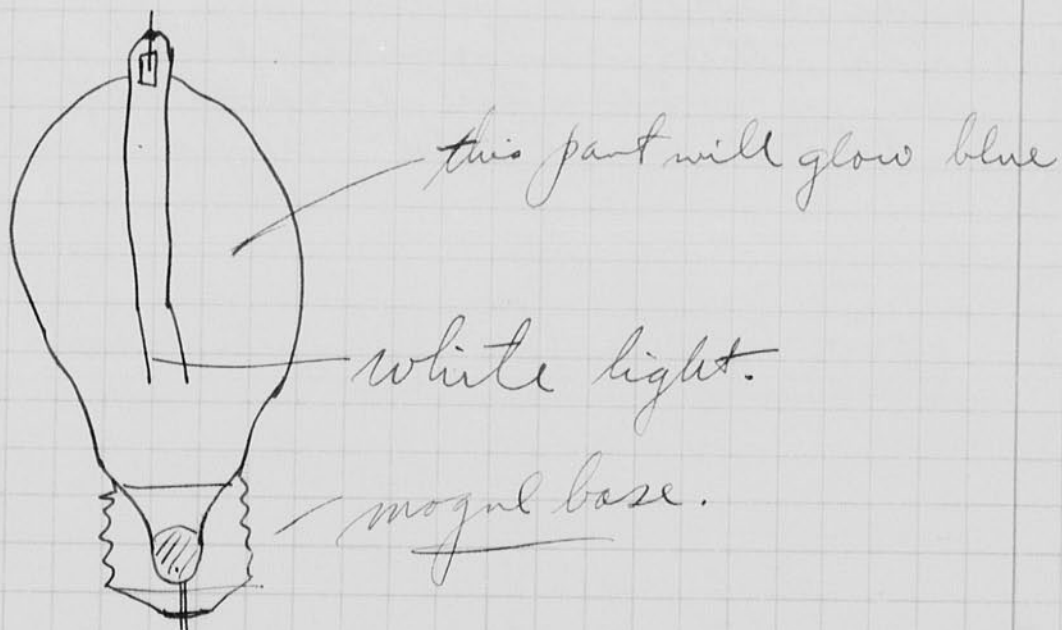 this part will glow blue
white light.
mogul base.